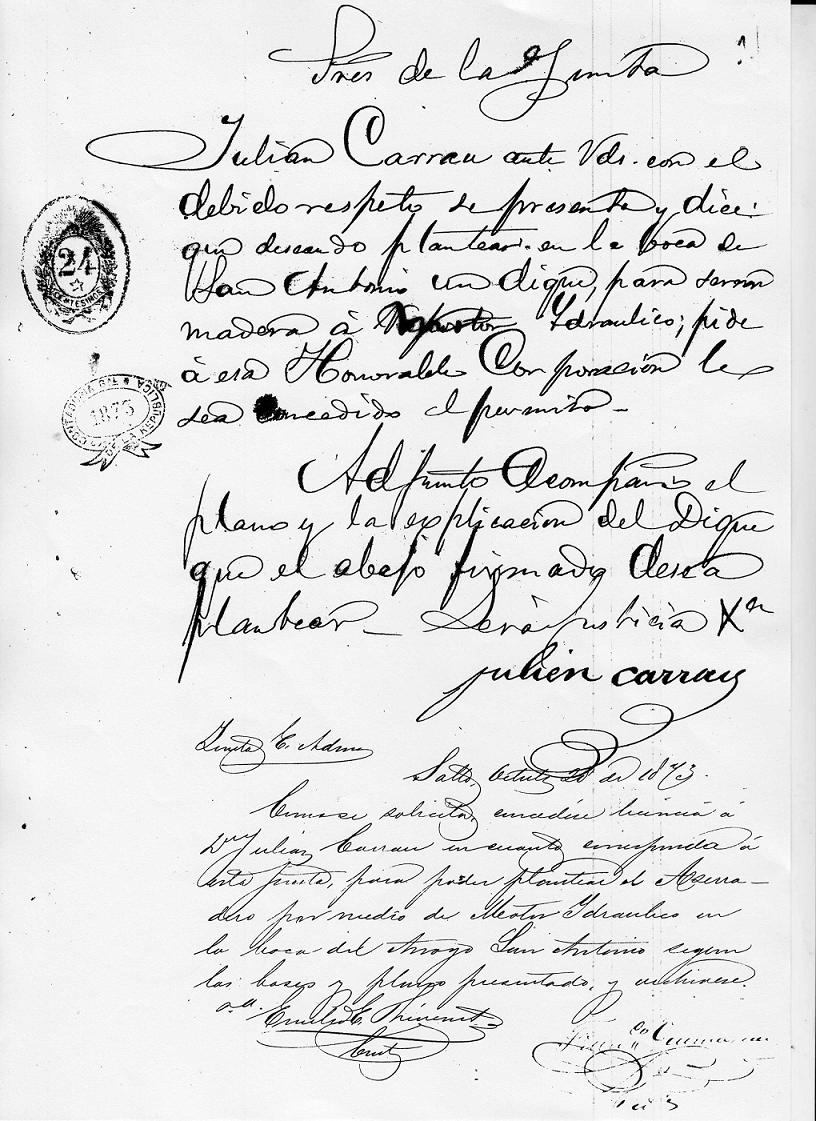 Sres de la Junta
Julian Carrau ante Vds. con el
debido respeto se presenta y dice:
que deseando plantear en la boca de
San Antonio un dique, para serrar
madera á Ydraulico; pide
á esa Honorable Corporación le
sea concedido el permiso -
Adjunto Acompaño el
plano y la explicación del Dique
que el abajo firmado desea
plantear - Será justicia Xa
julien carrau
24
CENTESIMOS
1873
Junta E. Admva
Salto, Octubre 20 de 1873.
Como se solicita, concédese licencia á
Dn Julian Carrau en cuanto corresponda á
esta Junta, para poder plantear el Aserra-
dero por medio de Motor Ydraulico en
la boca del Arroyo San Antonio segun
las bases y plano presentado, y archivese.
Emilio